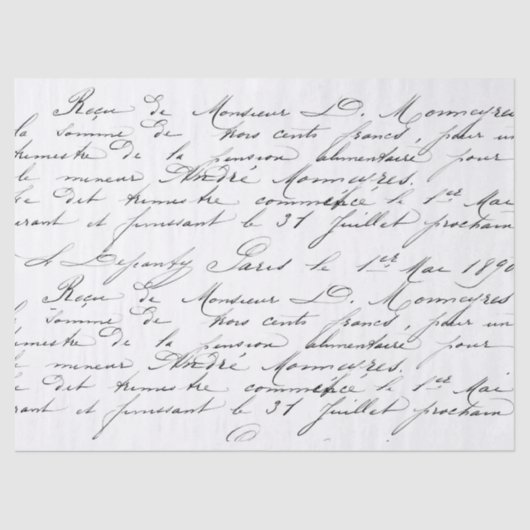 Reçu de Monsieur D. Monmeyres
la somme de trois cents francs, pour un
trimestre de la pension alimentaire pour
le mineur André Monmeyres.
Le dit trimestre commence le 1er Mai
urant et finissant le 31 Juillet prochain
Paris le 1er Mai 1890
Reçu de Monsieur D. Monmeyres
la somme de trois cents francs, pour un
imestre de la pension alimentaire pour
le mineur André Monmeyres.
Le dit trimestre commence le 1er Mai
rant et finissant le 31 Juillet prochain